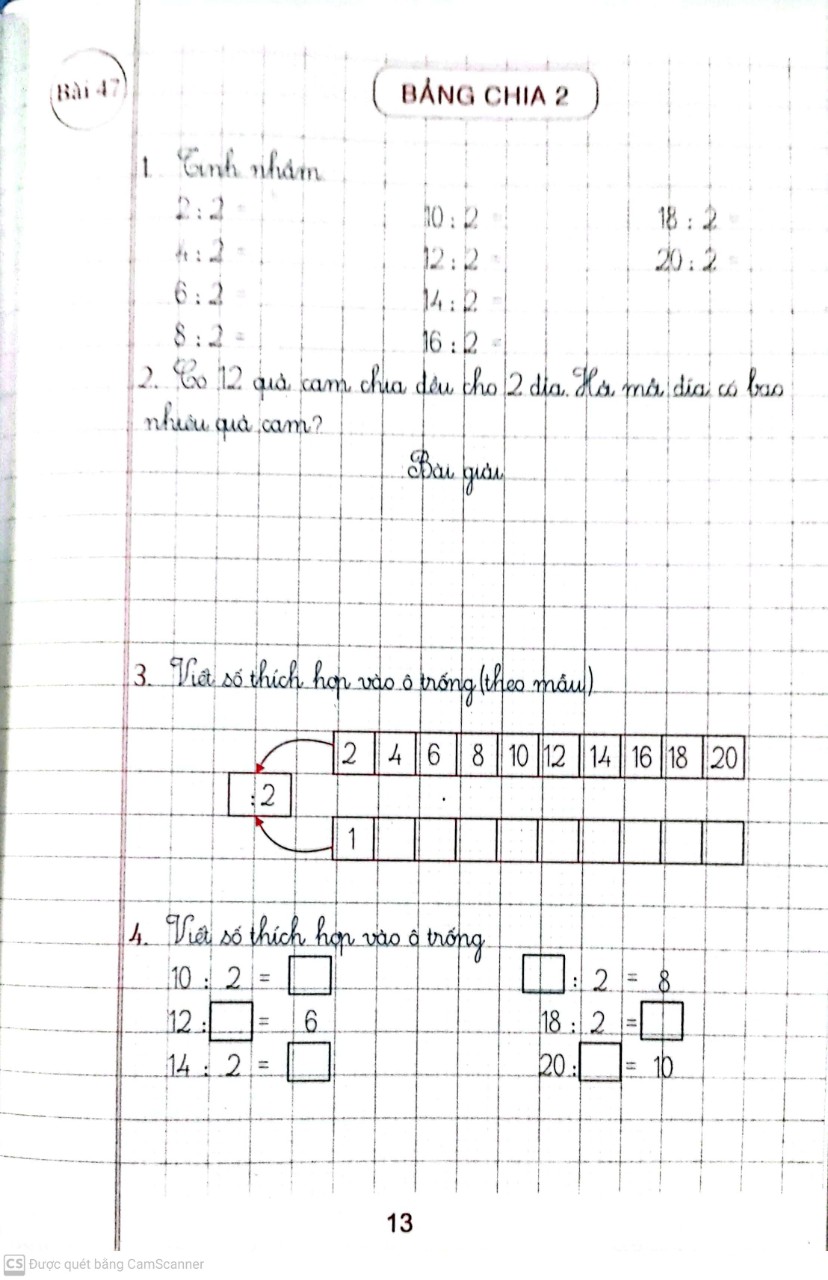 Bài 47
BẢNG CHIA 2
1. Tính nhẩm
2 : 2 = 10 : 2 = 18 : 2 =
4 : 2 = 12 : 2 = 20 : 2 =
6 : 2 = 14 : 2 =
8 : 2 = 16 : 2 =
2. Có 12 quả cam chia đều cho 2 đĩa. Hỏi mỗi đĩa có bao
nhiêu quả cam?
Bài giải
3. Viết số thích hợp vào ô trống (theo mẫu)
2 4 6 8 10 12 14 16 18 20
: 2
1
4. Viết số thích hợp vào ô trống
10 : 2 = : 2 = 8
12 : = 6 18 : 2 =
14 : 2 = 20 : = 10
13
CS Được quét bằng CamScanner